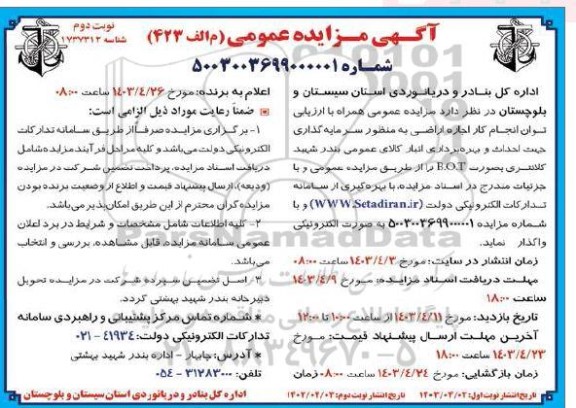 آگهی مزایده عمومی (م الف ۴۲۳)
نوبت دوم
شناسه ۱۷۳۷۳۱۲
شماره ۵۰۰۳۰۰۳۶۹۹۰۰۰۰۰۱
اداره کل بنادر و دریانوردی استان سیستان و
بلوچستان در نظر دارد مزایده عمومی همراه با ارزیابی
توان انجام کار اجاره اراضی به منظور سرمایه گذاری
جهت احداث و بهره برداری انبار کالای عمومی بندر شهید
کلانتری بصورت B.O.T را از طریق مزایده عمومی و با
جزئیات مندرج در اسناد مزایده، با بهره گیری از سامانه
تدارکات الکترونیکی دولت (WWW.Setadiran.ir) و با
شماره مزایده ۵۰۰۳۰۰۳۶۹۹۰۰۰۰۰۱ به صورت الکترونیکی
واگذار نماید.
زمان انتشار در سایت: مورخ ۱۴۰۳/۴/۳ ساعت ۰۸:۰۰
مهلت دریافت اسناد مزایده: مورخ ۱۴۰۳/۴/۹
ساعت ۱۸:۰۰
تاریخ بازدید: مورخ ۱۴۰۳/۴/۱۱ از ساعت ۱۰:۰۰ تا ۱۲:۰۰
آخرین مهلت ارسال پیشنهاد قیمت: مورخ
۱۴۰۳/۴/۲۳ ساعت ۱۸:۰۰
زمان بازگشایی: مورخ ۱۴۰۳/۴/۲۴ ساعت ۰۸:۰۰ زمان
اعلام به برنده: مورخ ۱۴۰۳/۴/۲۶ ساعت ۰۸:۰۰
ضمناً رعایت موارد ذیل الزامی است:
۱- برگزاری مزایده صرفا از طریق سامانه تدارکات
الکترونیکی دولت می باشد و کلیه مراحل فرآیند مزایده شامل
دریافت اسناد مزایده، پرداخت تضمین شرکت در مزایده
(ودیعه)، ارسال پیشنهاد قیمت و اطلاع از وضعیت برنده بودن
مزایده گران محترم از این طریق امکان پذیر می باشد.
۲- کلیه اطلاعات شامل مشخصات و شرایط در برد اعلان
عمومی سامانه مزایده، قابل مشاهده، بررسی و انتخاب
می باشد.
۳- اصل تضمین سپرده شرکت در مزایده تحویل
دبیرخانه بندر شهید بهشتی گردد.
* شماره تماس مرکز پشتیبانی و راهبردی سامانه
تدارکات الکترونیکی دولت: ۴۱۹۳۴ - ۰۲۱
* آدرس: چابهار - اداره بندر شهید بهشتی
تلفن: ۳۱۲۸۳۰۰۰ - ۰۵۴
تاریخ انتشار نوبت اول: ۱۴۰۳/۰۴/۰۲
تاریخ انتشار نوبت دوم: ۱۴۰۳/۰۴/۰۳
اداره کل بنادر و دریانوردی استان سیستان و بلوچستان